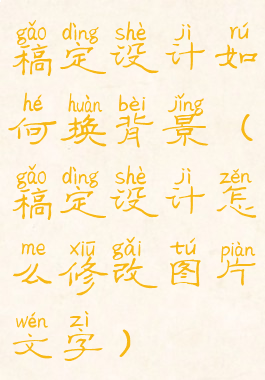 gǎo dìng shè jì rú
搞定设计如
hé huàn bèi jǐng
何换背景（
gǎo dìng shè jì zěn
搞定设计怎
me xiū gǎi tú piàn
么修改图片
wén zì
文字）